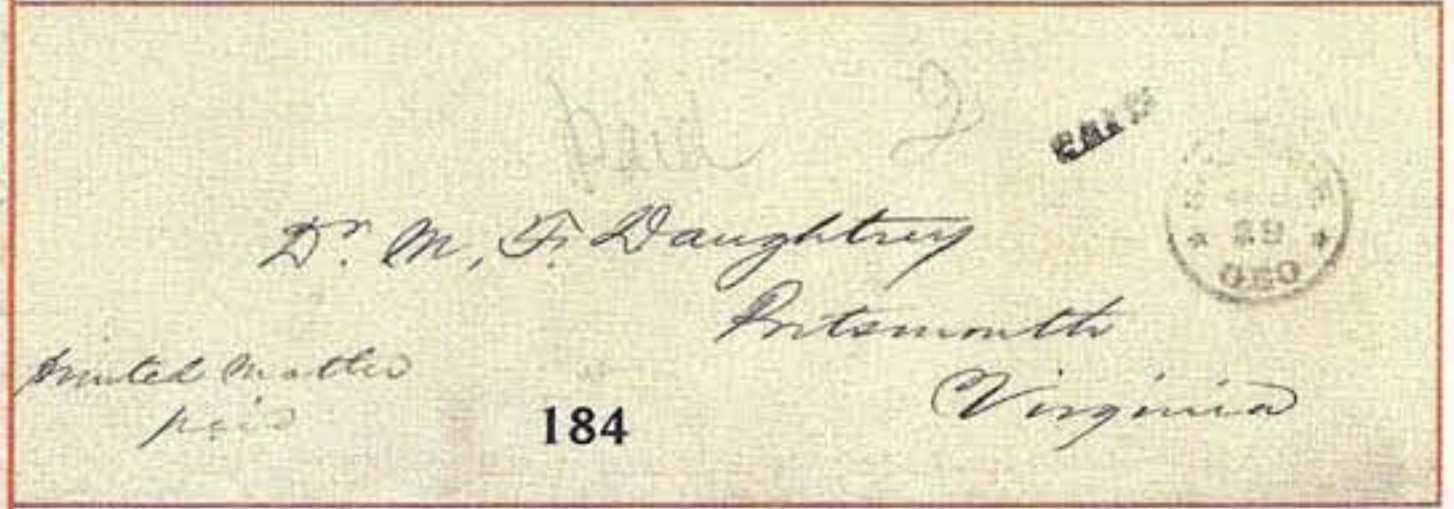 Paid 2
PAID
29
GEO
Dr. M, F. Daughtrey
Portsmouth
Virginia
Printed Matter
paid
184